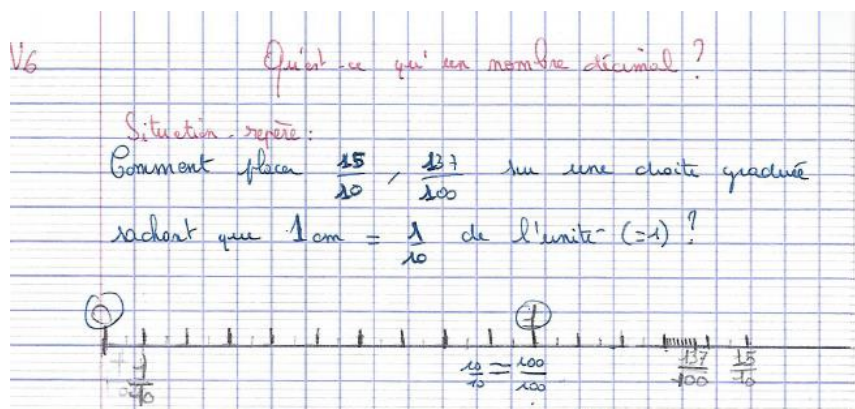 V6
Qu'est-ce qu'un nombre décimal ?
Situation-repère :
Comment placer 15/10, 137/100 sur une droite graduée
sachant que 1 cm = 1/10 de l'unité (=1) ?
0 1
1/10 10/10 = 100/100 137/100 15/10